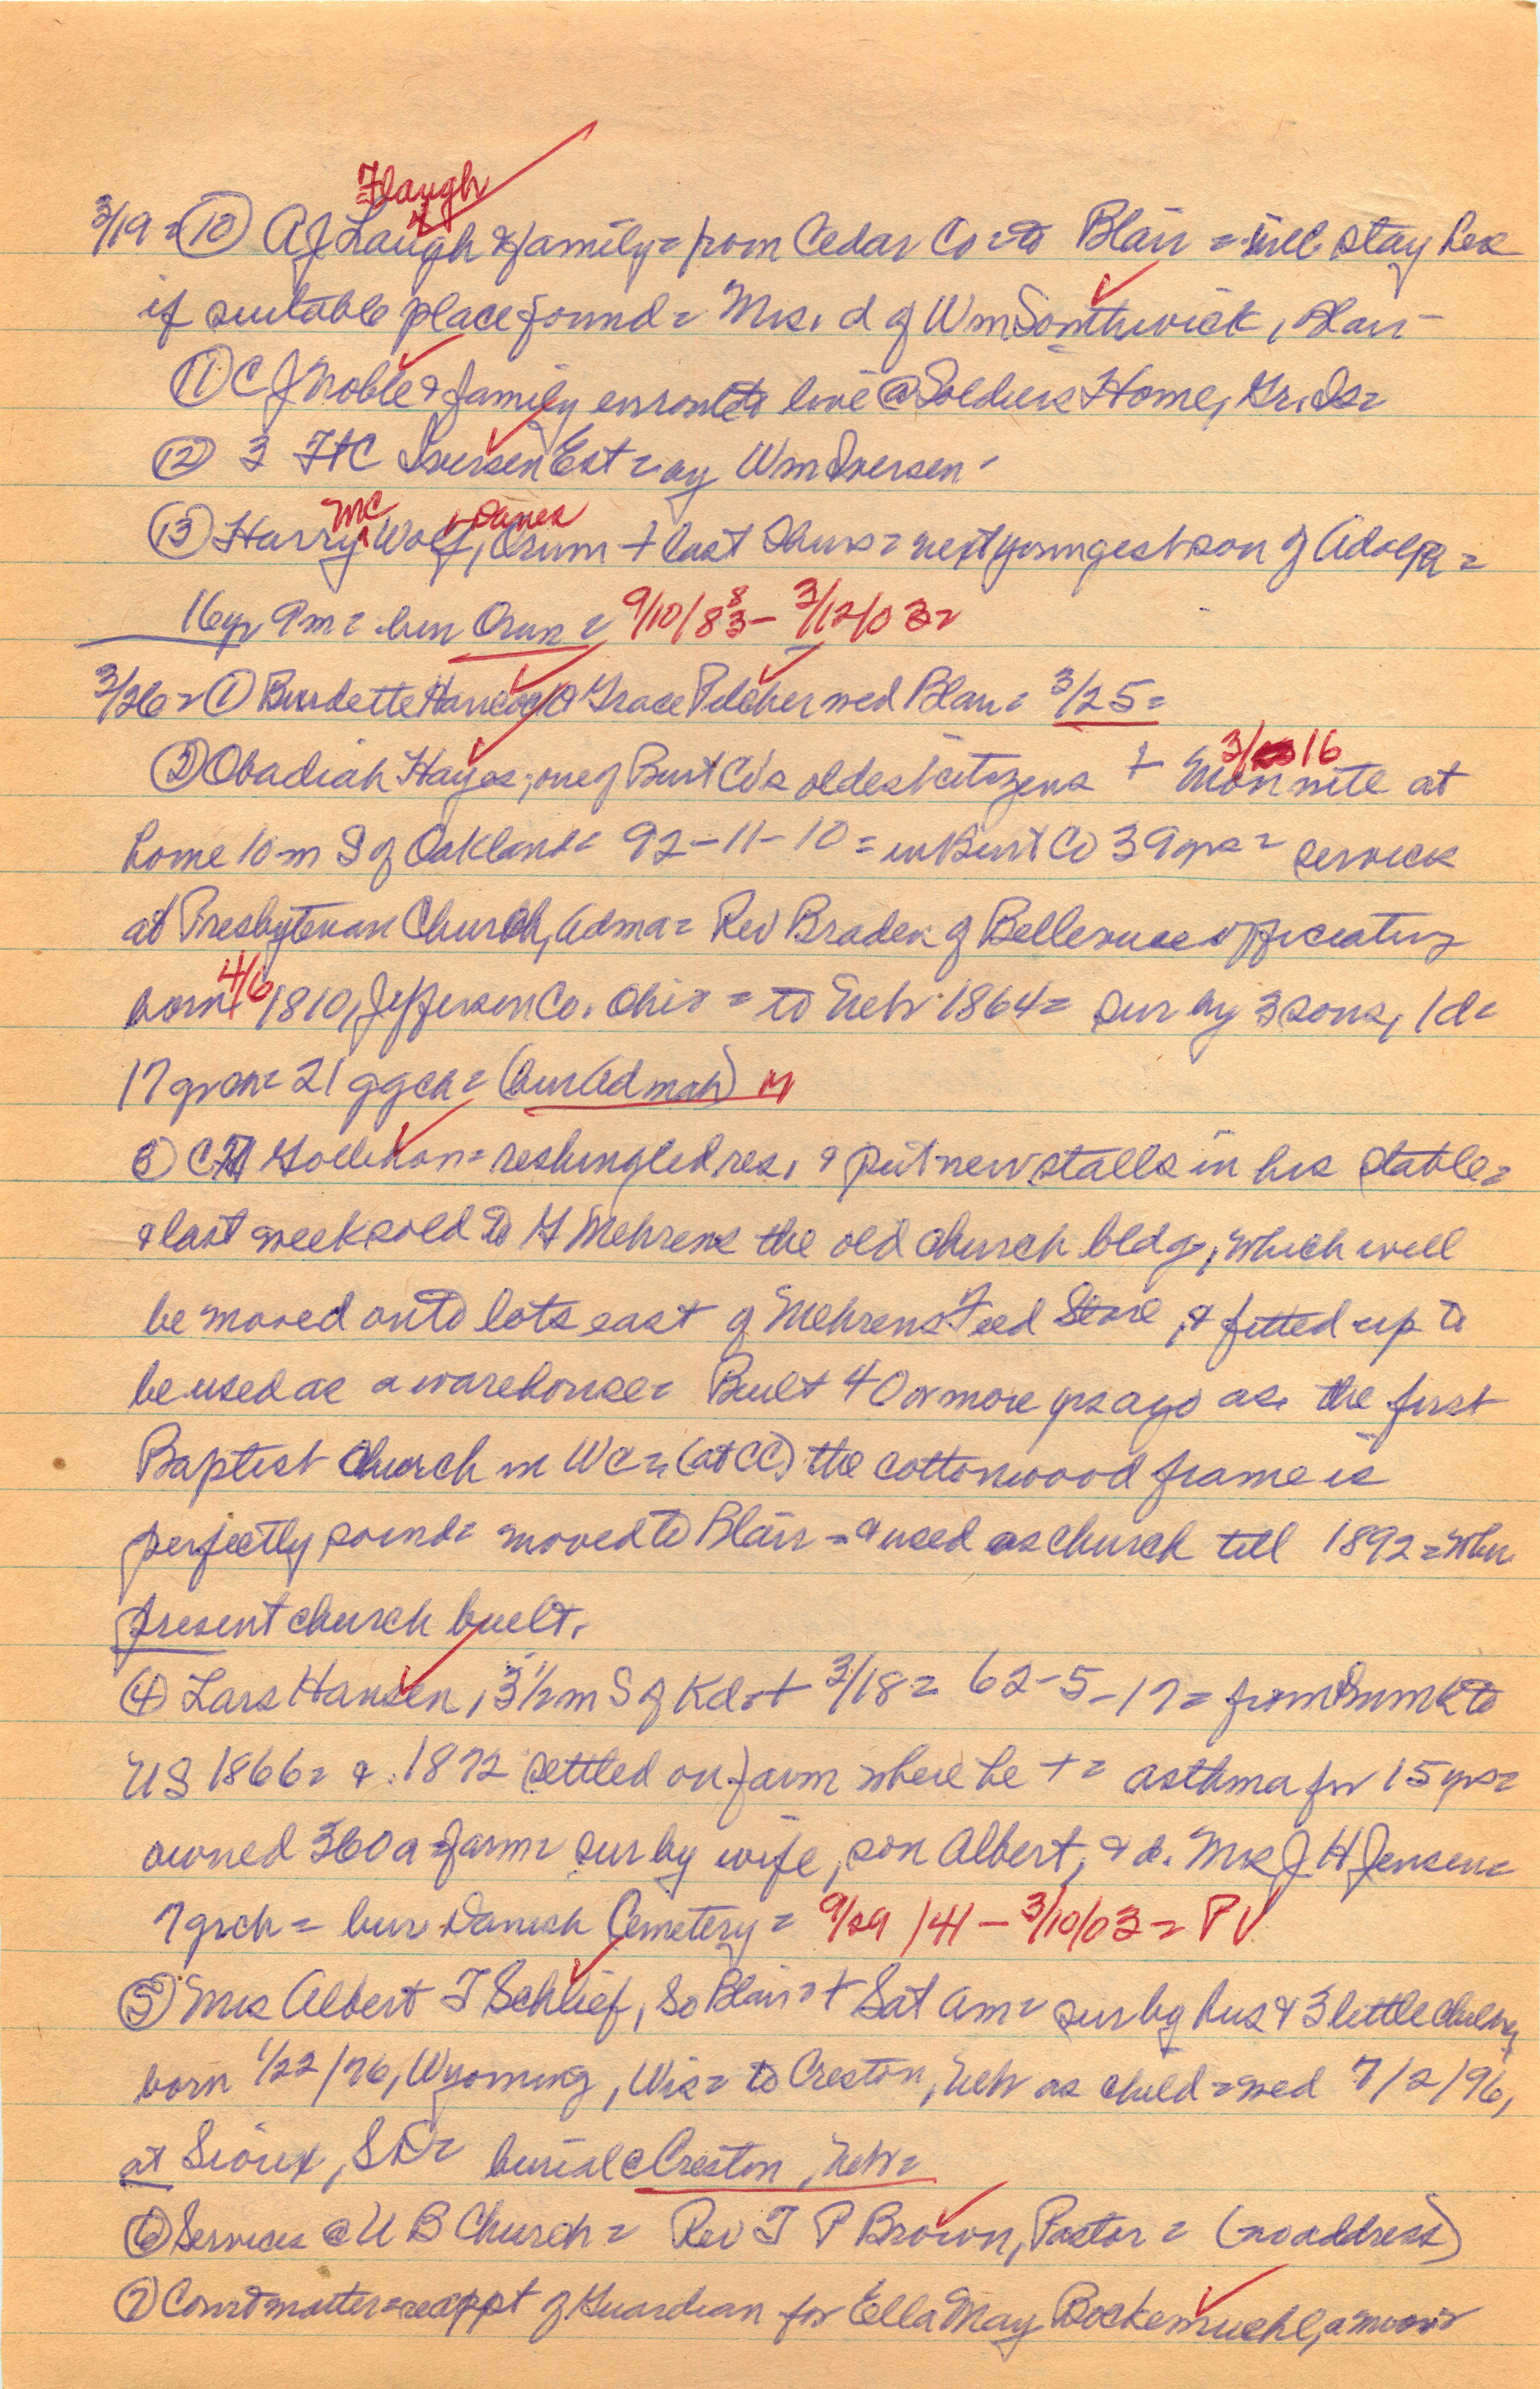 Flaugh
3/19 = ⑩ A J Laugh & family = from Cedar Co = to Blair = will stay here
if suitable place found = Mrs. d of Wm Southwick, Blair
⑪ C J Noble & family enroute to live @ Soldiers Home, Gr. Is =
⑫ 3 Iversen Est = by Wm Iversen -
Mc Danes
⑬ Harry Wolf, Orum + last Thurs = next youngest son of Adolph =
16 yr 9 m = bur Orum = 9/10/83 8 - 3/12/03 =
3/26 = ① Burdette Hancock & Grace Pilcher wed Blair = 3/25 =
3/16
② Obadiah Hayes, one of Burt Co's oldest citizens + Mon nite at
home 10 m S of Oakland = 92-11-10 = in Burt Co 39 yrs = services
at Presbyterian Church, Adma = Rev Braden of Bellevue officiating
born 4/6 1810, Jefferson Co. Ohio = to Neb 1864 = sur by 3 sons, 1 d =
17 grch = 21 ggch = (bur Admah)
③ Gollehon = reshingled res, & put new stalls in his stable =
& last week sold to H Mehrens the old church bldg, which will
be moved onto lots east of Mehrens Feed Store, & fitted up to
be used as a warehouse = Built 40 or more yrs ago as the first
Baptist Church in WC = (at CC) the cottonwood frame is
perfectly sound = moved to Blair = & used as church till 1892 = when
present church built.
④ Lars Hansen, 3 1/2 m S of Kd = + 3/18 = 62-5-17 = from Dnmk to
US 1866 = & 1872 settled on farm where he + = asthma for 15 yrs =
owned 360 a farm = sur by wife, son Albert, & d. Mrs J H Jensen =
7 grch = bur Danish Cemetery = 9/29/41 - 3/10/03 = PV
⑤ Mrs Albert T Schlief, So Blair = + Sat am = sur by hus & 3 little children
born 1/22/76, Wyoming, Wis = to Creston, Neb as child = wed 7/2/96,
at Sioux, SD = burial @ Creston, Neb =
⑥ Services @ U B Church = Rev T P Brown, Pastor = (no address)
⑦ Court matters = reappt of Guardian for Ella May Bockemuehl, a minor